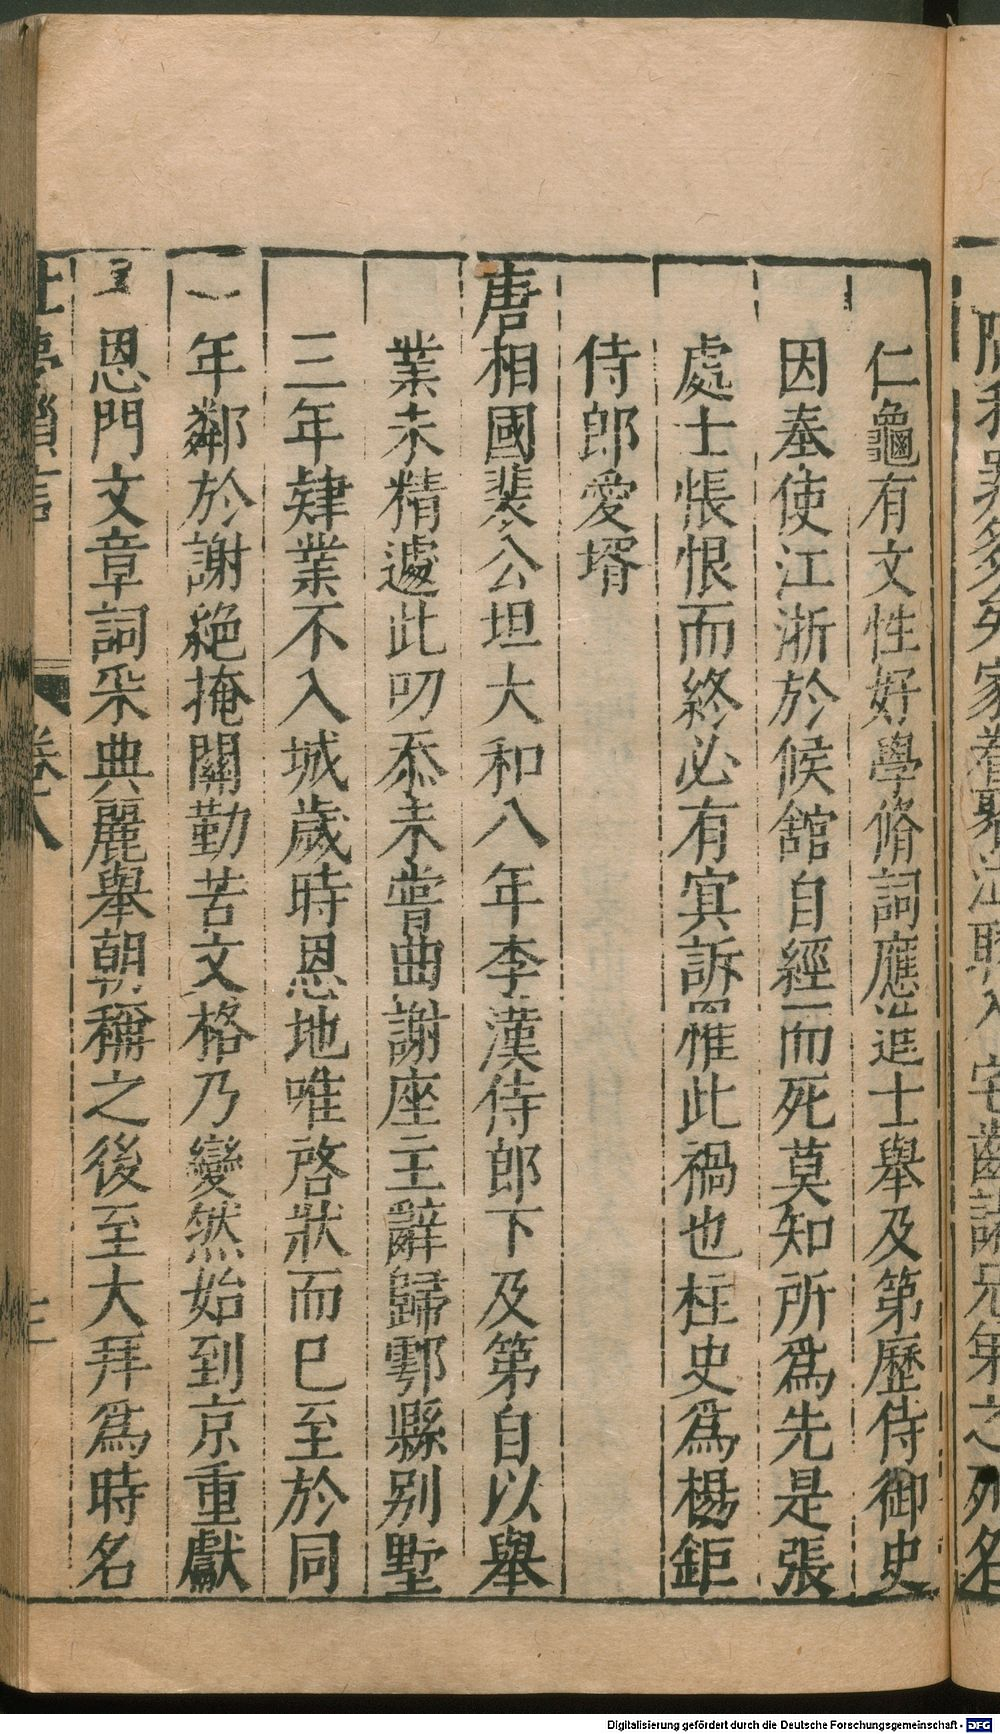 仁龜有文性好學脩詞應進士舉及第歷侍御史
因奉使江浙於候舘自經而死莫知所爲先是張
處士悵恨而終必有㝠訴罹此禍也柱史爲楊鉅
侍郎愛壻
唐相國裴公坦大和八年李漢侍郎下及第自以舉
業未精遽此叨忝未嘗曲謝座主辭歸鄠縣别墅
三年肄業不入城歲時恩地唯啓狀而已至於同
年鄰於謝絶掩關勤苦文格乃變然始到京重獻
恩門文章詞采典麗舉朝稱之後至大拜爲時名
卷八
Digitalisierung gefördert durch die Deutsche Forschungsgemeinschaft - DFG